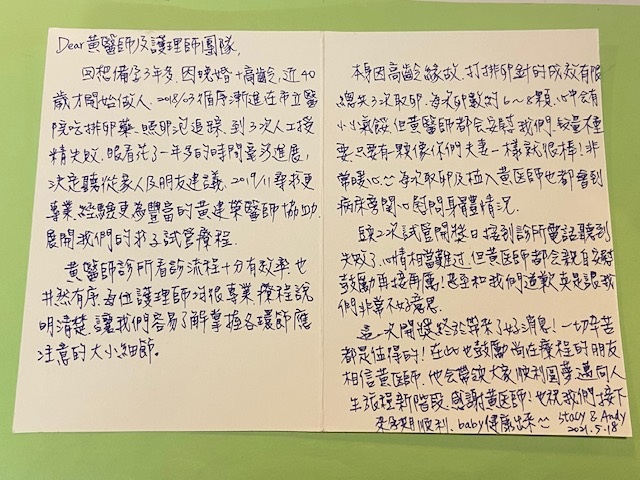 Dear 黃醫師及護理師團隊,
回想備孕3年多,因晚婚+高齡,近40
歲才開始做人.2018/03循序漸進在市立醫
院吃排卵藥、照卵泡追蹤,到3次人工授
精失敗,眼看花了一年多的時間毫沒進展,
決定聽從家人及朋友建議,2019/11尋求更
專業,經驗更為豐富的黃建榮醫師協助.
展開我們的求子試管療程.
黃醫師診所看診流程十分有效率也
井然有序.各位護理師均很專業,療程說
明清楚,讓我們容易了解掌握各環節應
注意的大小細節。
本身因高齡緣故,打排卵針的成效有限
總共3次取卵,每次卵數約6~8顆,心中會有
小小氣餒,但黃醫師都會安慰我們,數量不重
要,只要有1顆像你們夫妻一樣就很棒!非
常暖心~~每次取卵及植入黃醫師也都會到
病床旁關心慰問身體情況.
頭2次試管開獎日接到診所電話聽到
失敗了,心情相當難過,但黃醫師都會親自安慰
鼓勵再接再厲!甚至和我們道歉真是讓我
們非常不好意思.
這一次開獎終於等來了好消息!一切辛苦
都是值得的!在此也鼓勵尚在療程的朋友
相信黃醫師,他會帶領大家順利圓夢邁向人
生旅程新階段.感謝黃醫師!也祝我們接下
來孕期順利,baby健康出來~~ Stacy & Andy
2021.5.18